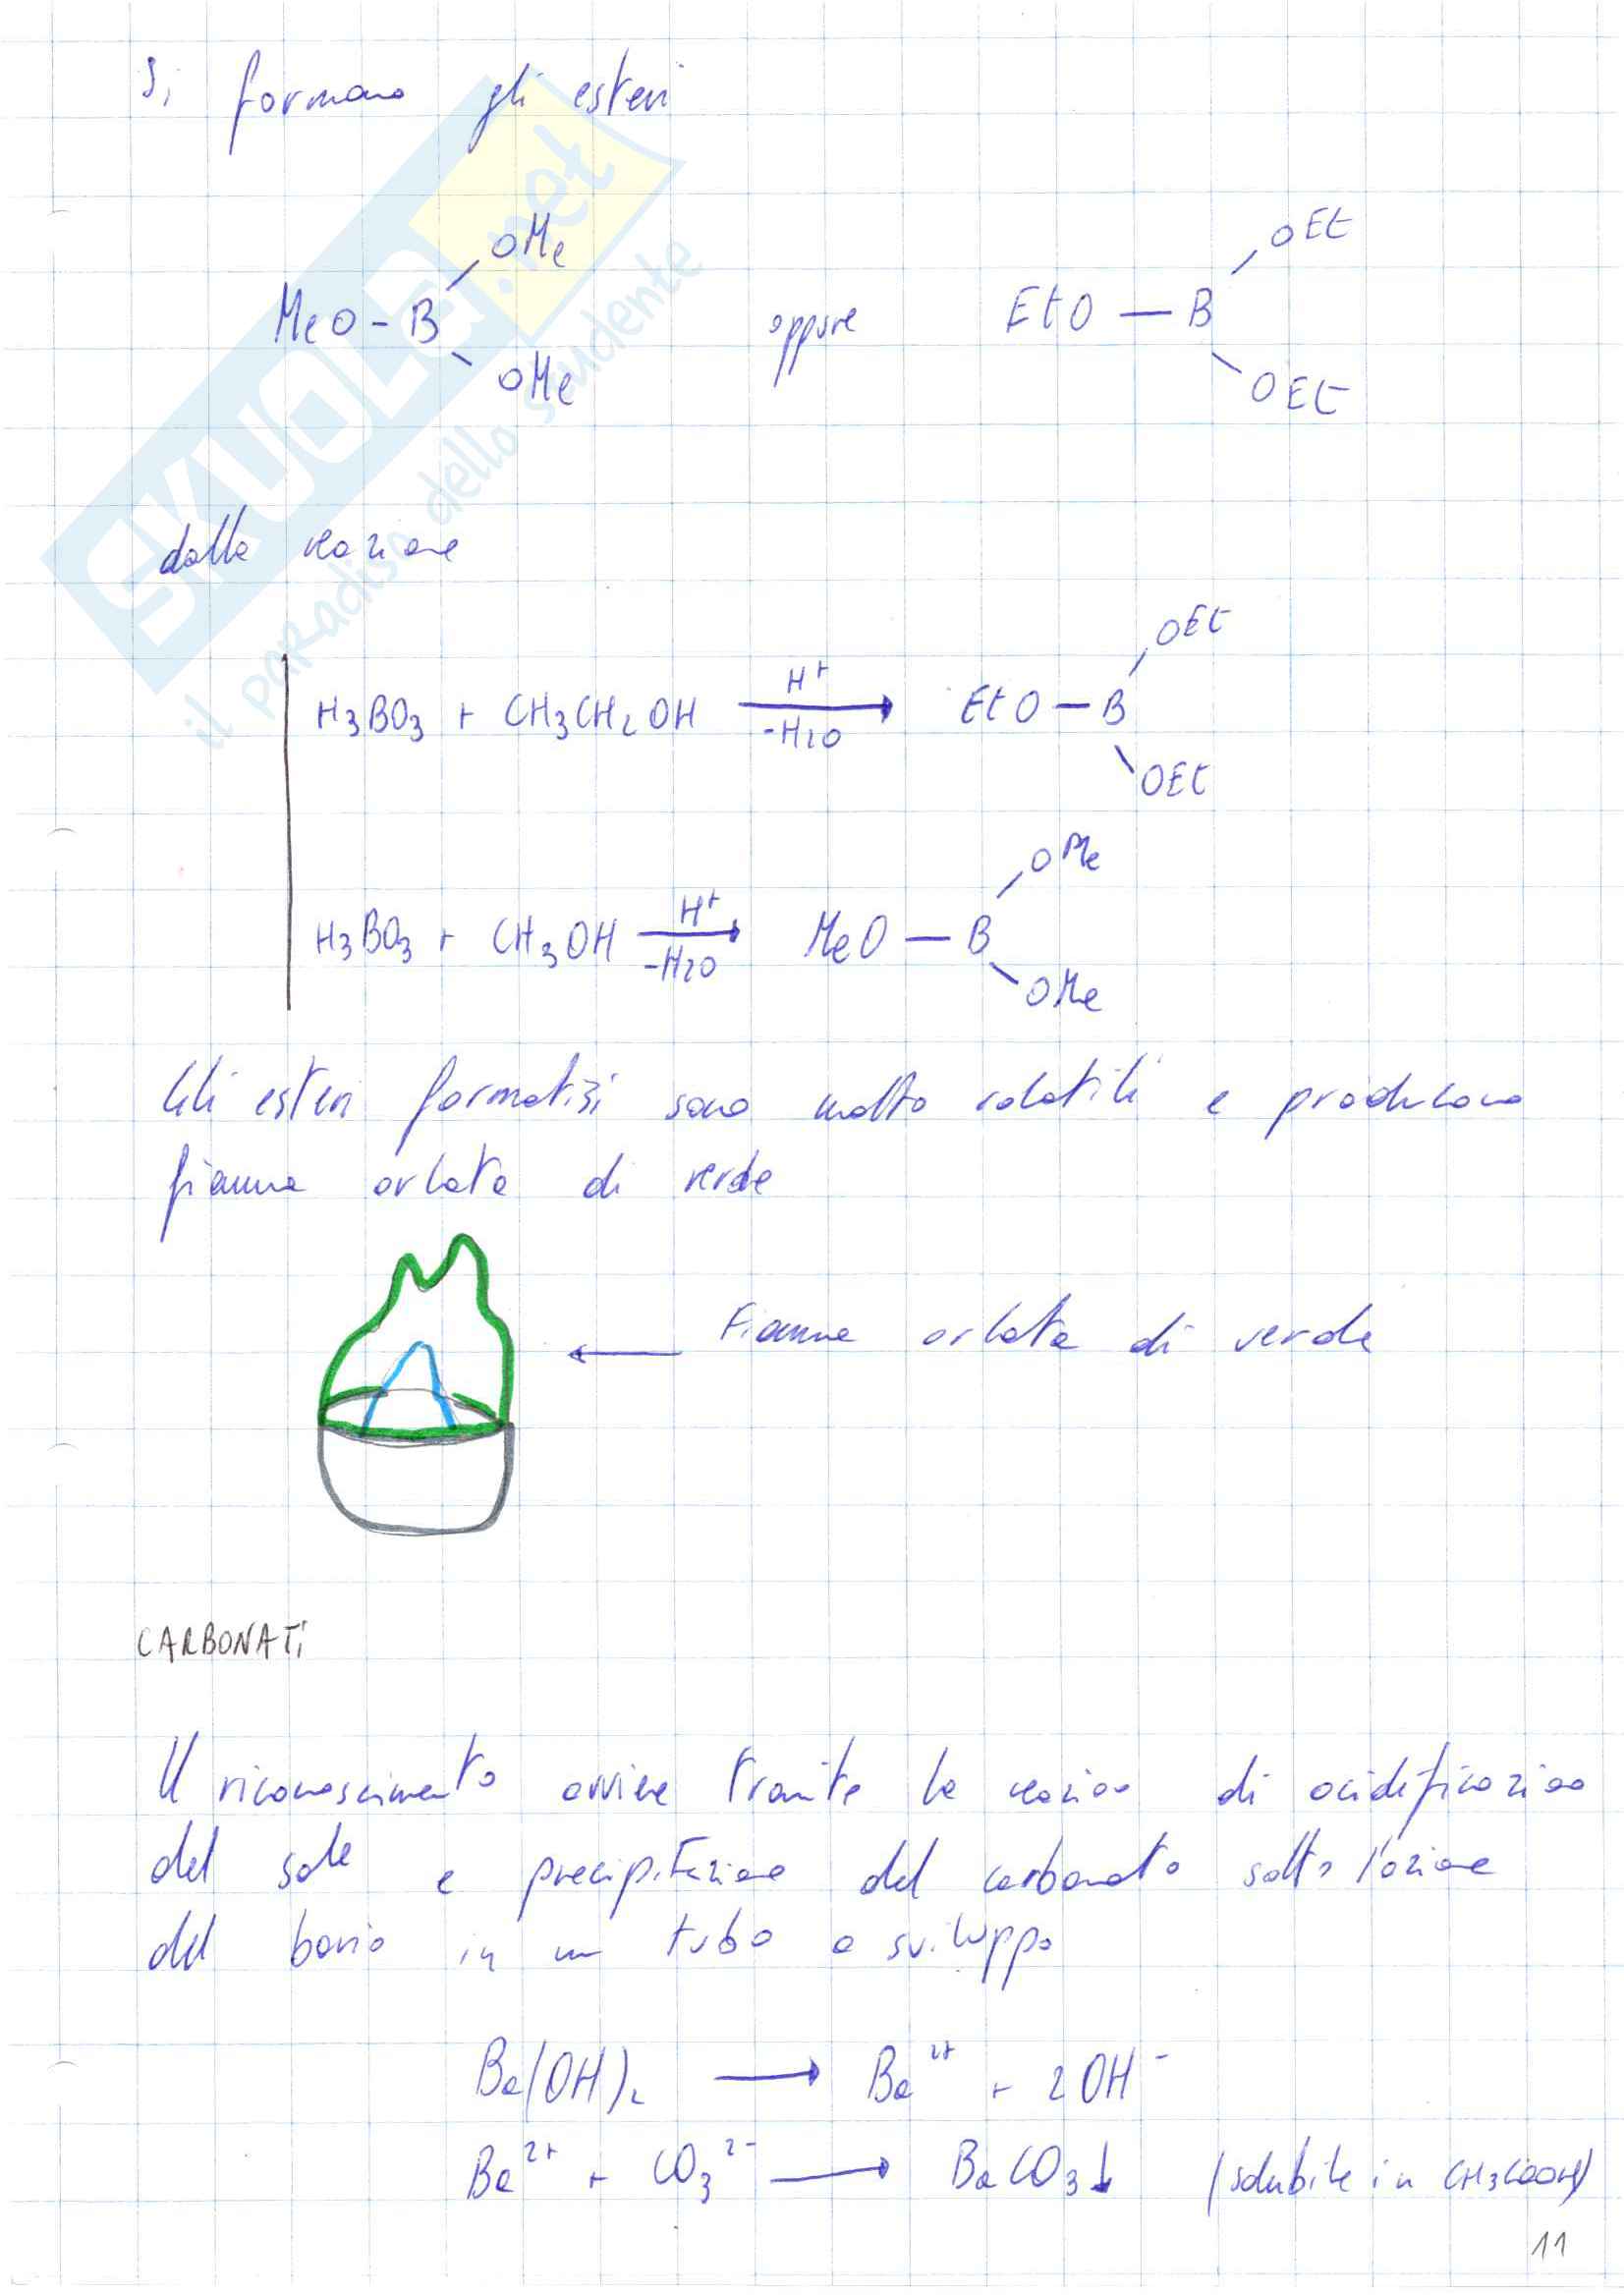 Si formano gli esteri
OMe
MeO-B
OMe
oppure
OEt
EtO—B
OEt
dalla reazione
OEt
H3BO3 + CH3CH2OH H+ -H2O → EtO—B
OEt
OMe
H3BO3 + CH3OH H+ -H2O → MeO—B
OMe
Gli esteri formatisi sono molto volatili e producono
fiamma orlata di verde
← Fiamma orlata di verde
CARBONATI
Il riconoscimento avviene tramite la reazione di acidificazione
del sale e precipitazione del carbonato sotto l'azione
del bario in un tubo a sviluppo
Ba(OH)2 → Ba2+ + 2OH-
Ba2+ + CO3 2- → BaCO3↓ (solubile in CH3COOH)
11
SKUOLA.net
il paradiso dello studente